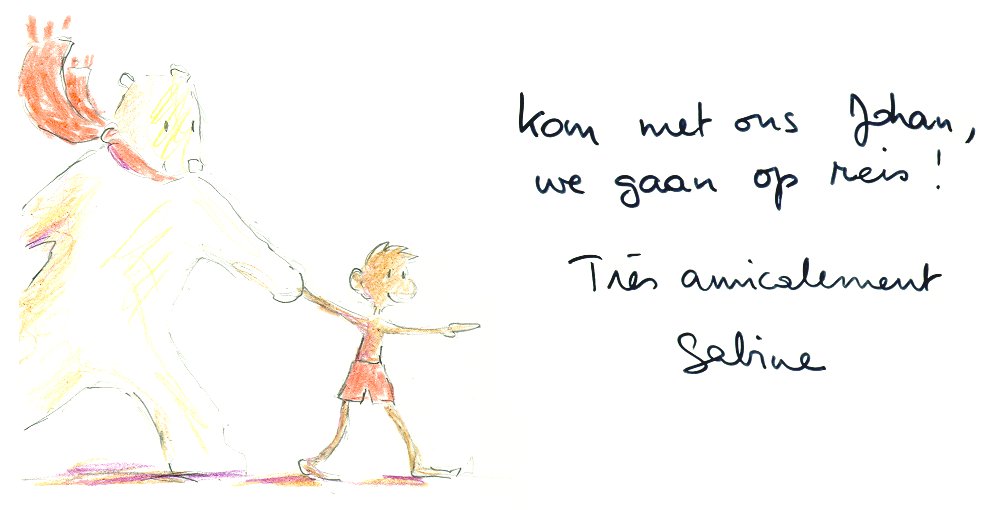 kom met ons Johan,
we gaan op reis!
Très amicalement
Sabine